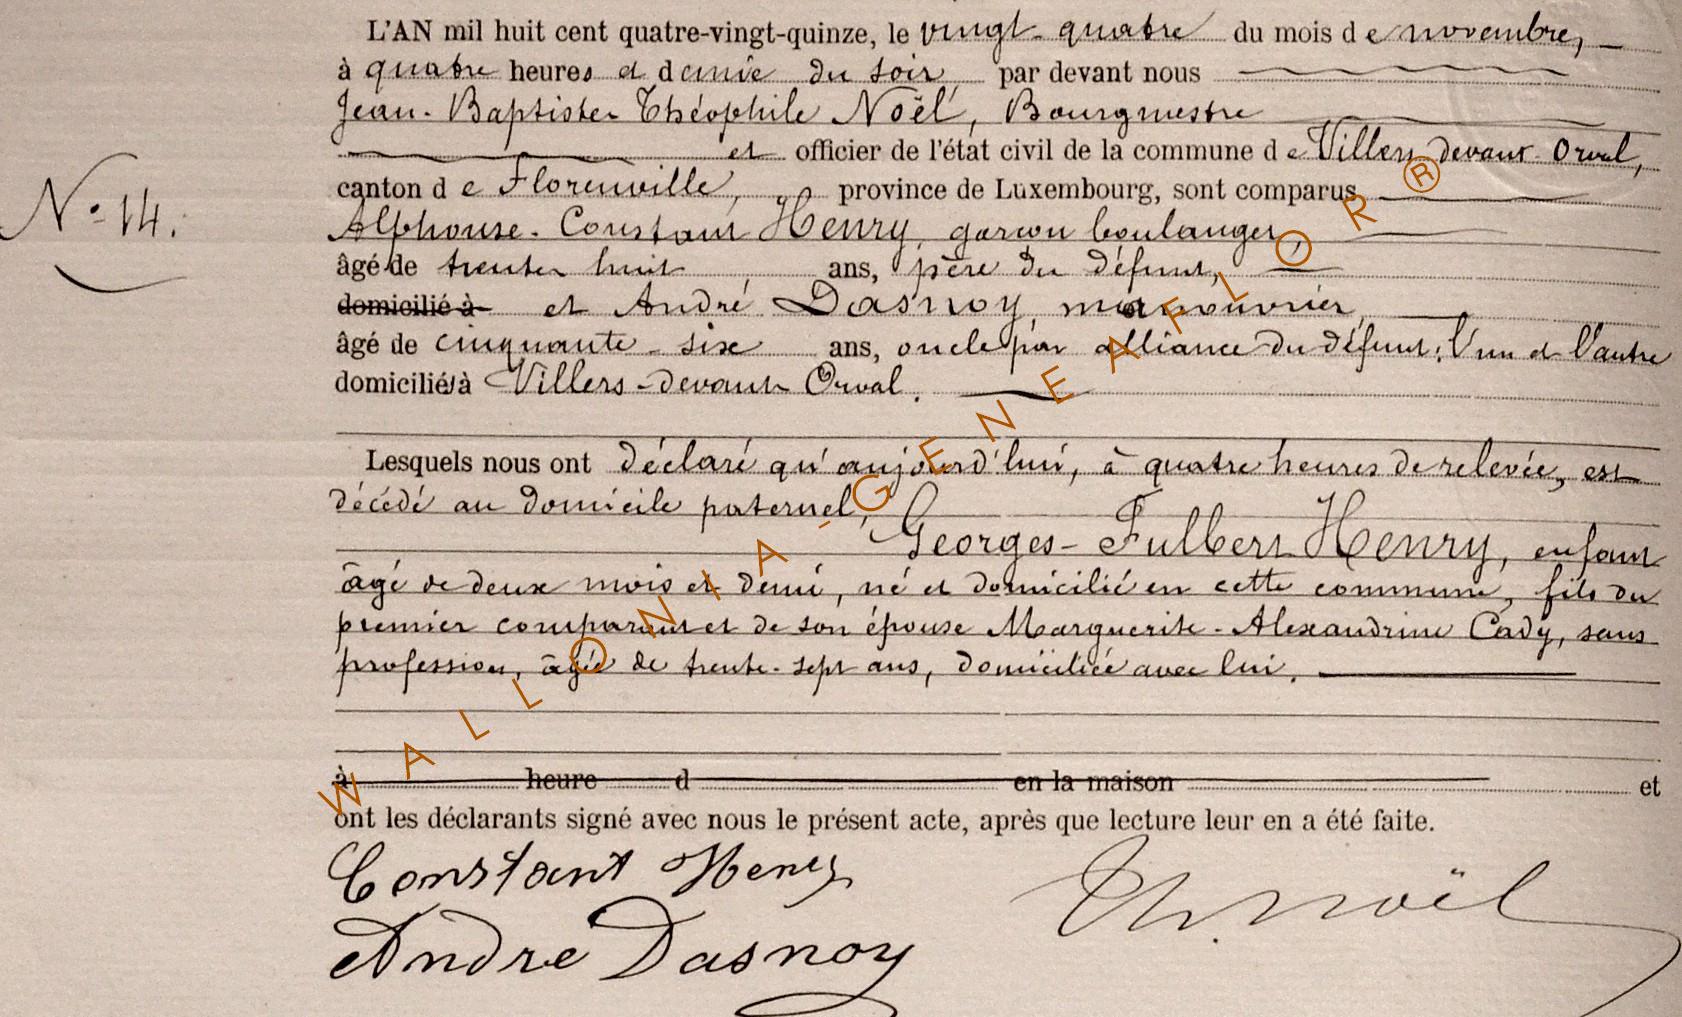 L'AN mil huit cent quatre-vingt-quinze, le vingt-quatre du mois de novembre,
à quatre heures et demie du soir, par devant nous
Jean-Baptiste Théophile Noël, Bourgmestre
et officier de l'état civil de la commune de Villers-devant-Orval,
canton de Florenville, province de Luxembourg, sont comparus
N° 14.
Alphonse-Constant Henry, garçon boulanger,
âgé de trente huit ans, père du défunt,
domicilié à et André Dasnoy, manouvrier,
âgé de cinquante-six ans, oncle par alliance du défunt; l'un et l'autre
domiciliés à Villers-devant-Orval.
Lesquels nous ont déclaré qu'aujourd'hui, à quatre heures de relevée, est
décédé au domicile paternel,
Georges-Fulbert Henry, enfant
âgé de deux mois et demi, né et domicilié en cette commune, fils du
premier comparant et de son épouse Marguerite-Alexandrine Cady, sans
profession, âgée de trente-sept ans, domiciliée avec lui.
à heure d en la maison et
ont les déclarants signé avec nous le présent acte, après que lecture leur en a été faite.
Constant Henry
Th. Noël
André Dasnoy
WALLONIA-GENEAFLOR®